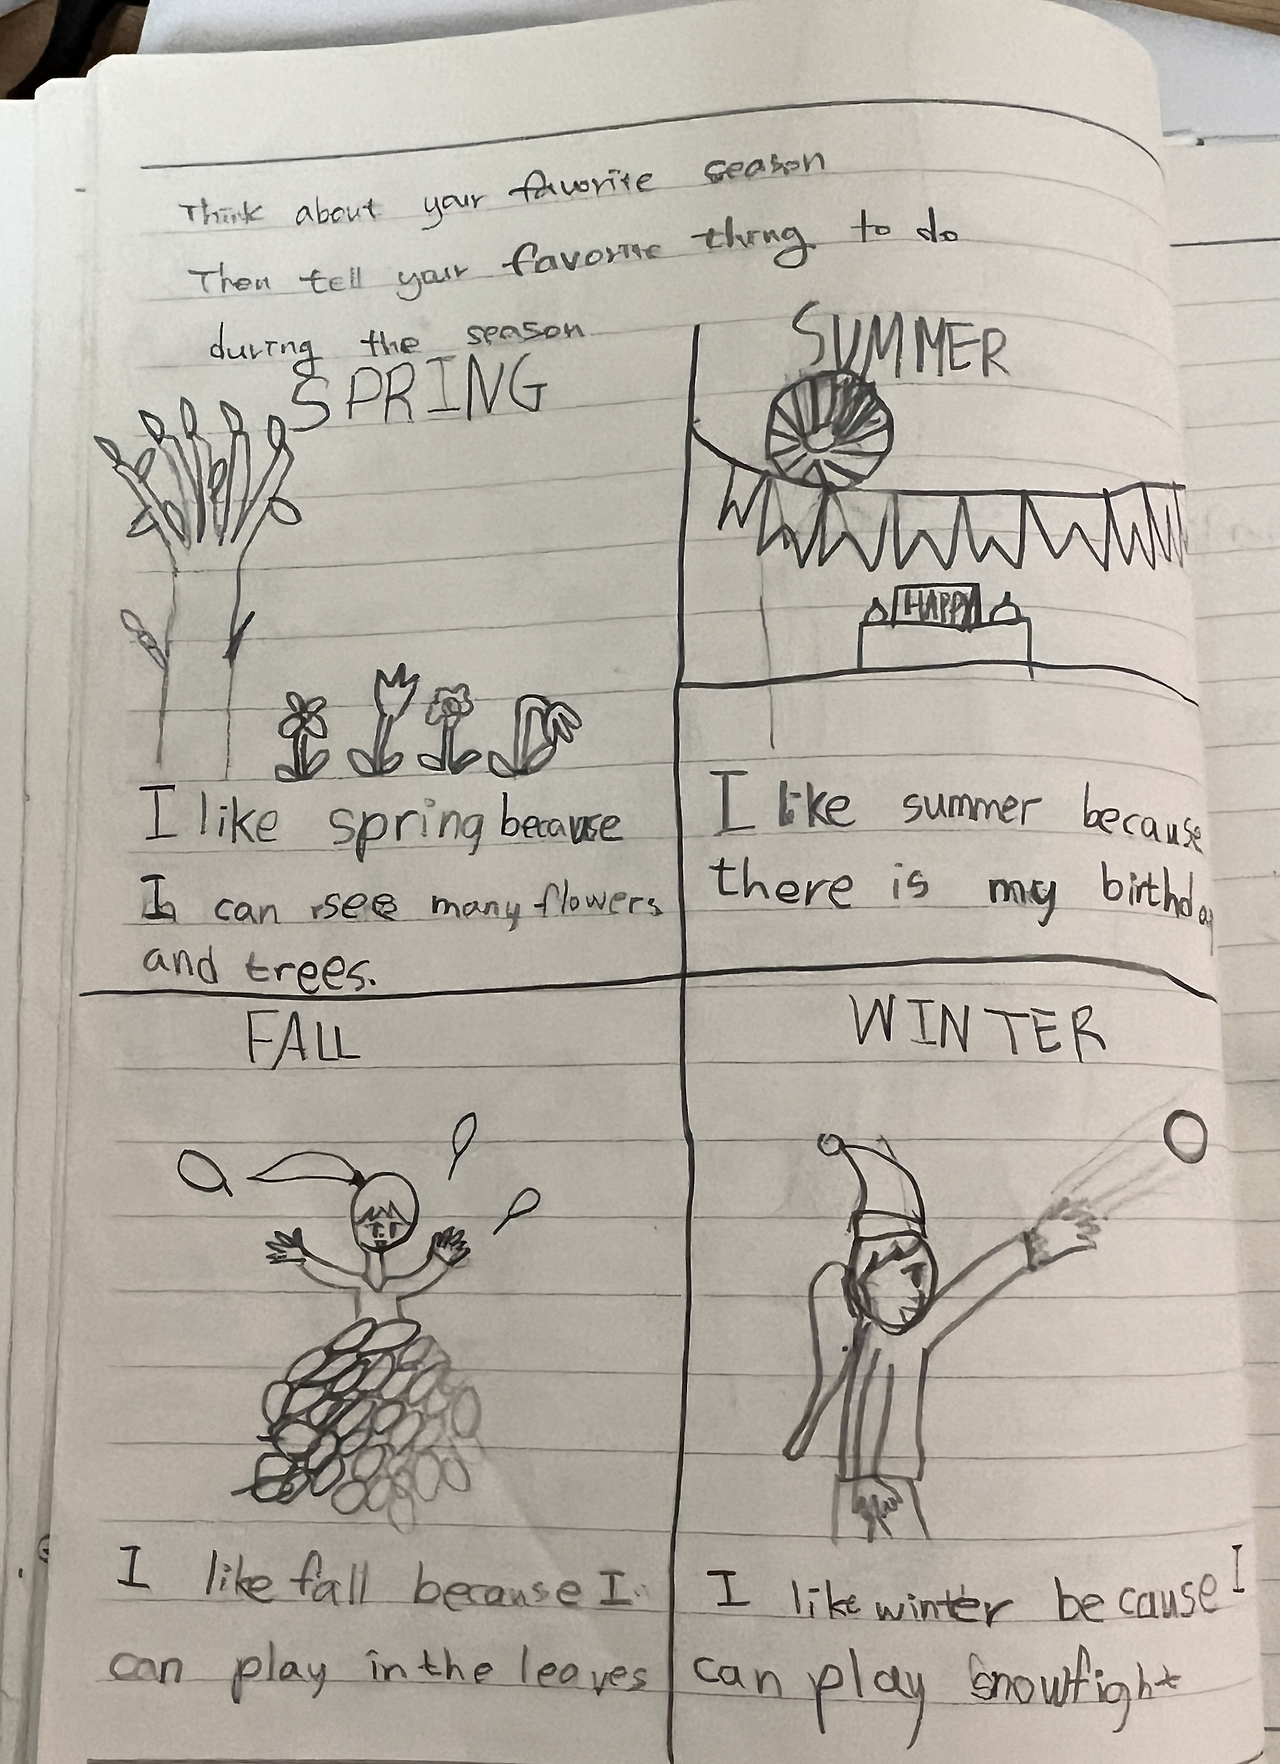 Think about your favorite season
Then tell your favorite thing to do
during the season
SPRING
I like spring because
I can see many flowers
and trees.
SUMMER
HAPPY
I like summer because
there is my birthday
FALL
I like fall because I
can play in the leaves
WINTER
I like winter because I
can play snowfight